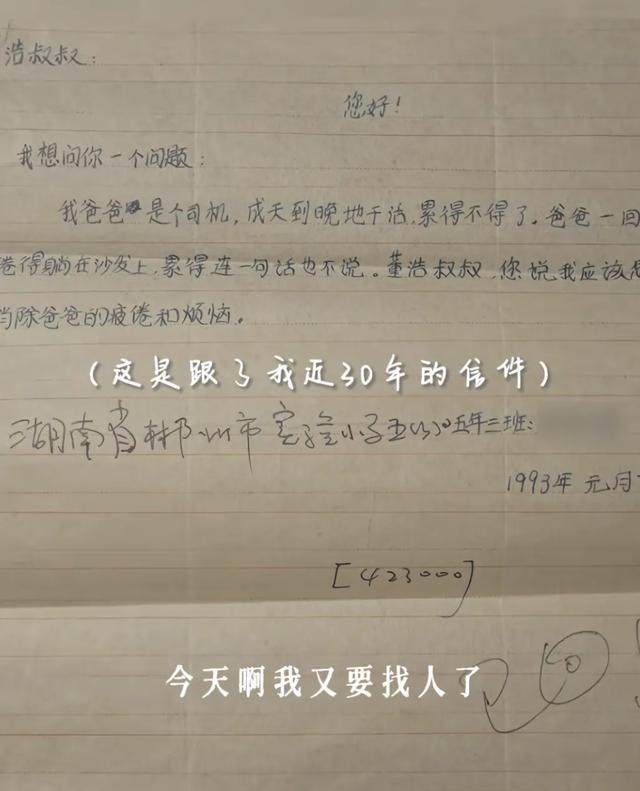 浩叔叔：
您好！
我想问你一个问题：
我爸爸是个司机，成天到晚地干活，累得不得了。爸爸一回
倦得躺在沙发上，累得连一句话也不说。董浩叔叔，您说我应该怎
当除爸爸的疲倦和烦恼。
（这是跟了我近30年的信件）
湖南省郴州市实验小学五(3) 五年三班：
1993年 元月
[423000]
今天啊我又要找人了